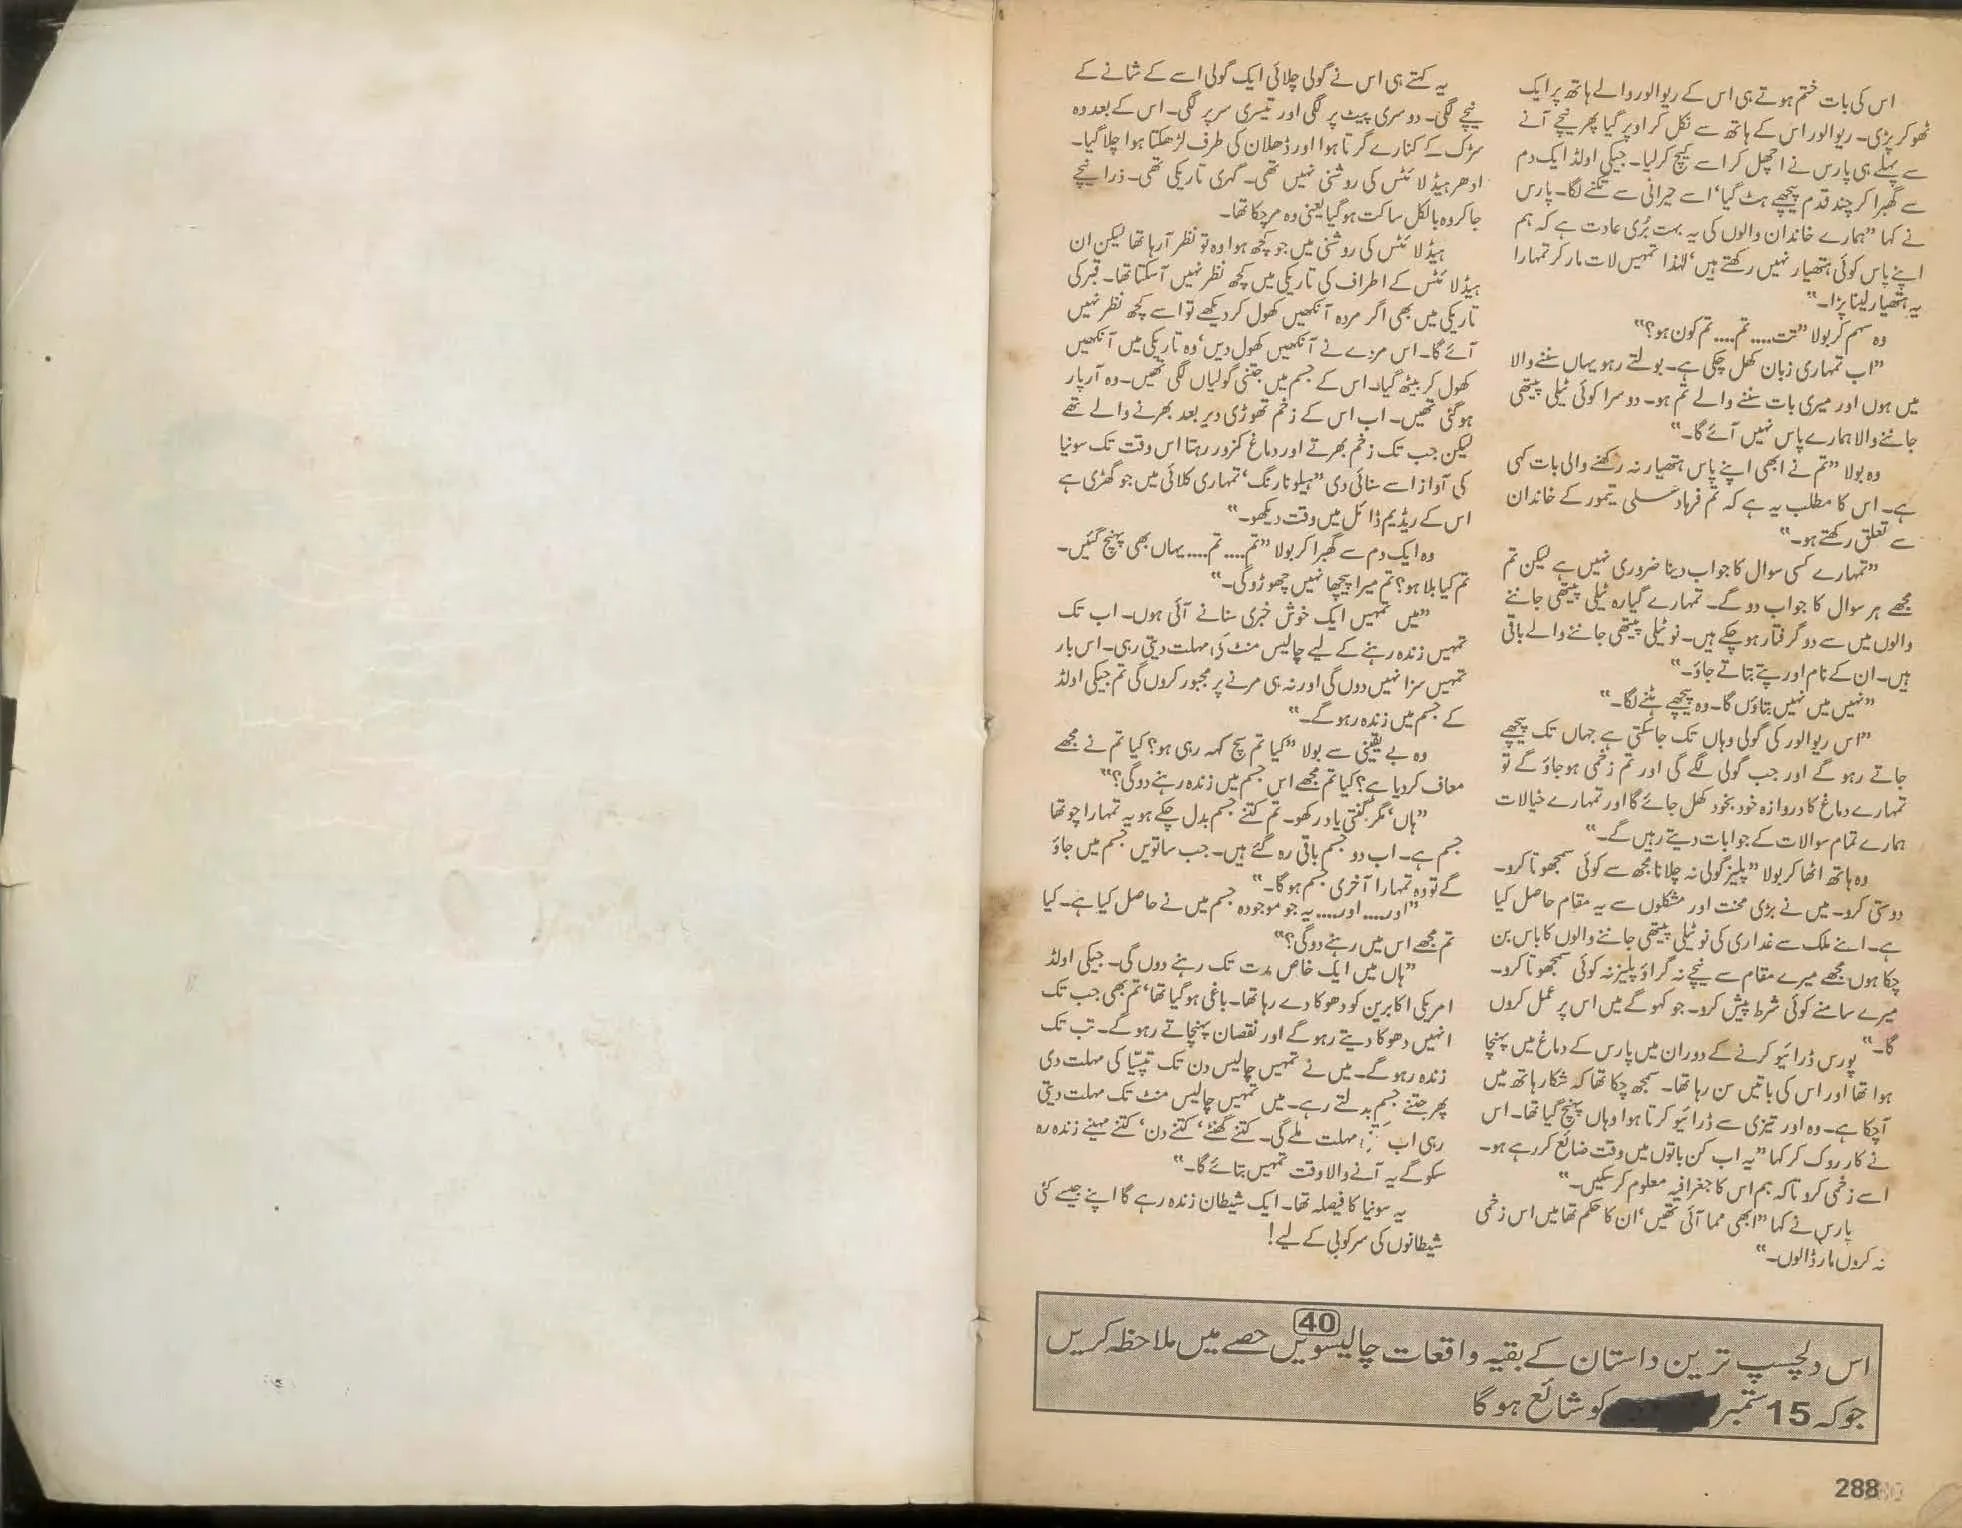 اس کی بات ختم ہوتے ہی اس کے ریوالور والے ہاتھ پر ایک
ٹھوکر پڑی۔ ریوالور اس کے ہاتھ سے نکل کر اوپر گیا پھر نیچے آنے
سے پہلے ہی پارس نے اچھل کر اسے کیچ کر لیا۔ جیکی اولڈ ایک دم
سے گھبرا کر چند قدم پیچھے ہٹ گیا، اسے حیرانی سے تکنے لگا۔ پارس
نے کہا "ہمارے خاندان والوں کی یہ بہت بُری عادت ہے کہ ہم
اپنے پاس کوئی ہتھیار نہیں رکھتے ہیں، لہٰذا تمہیں لات مار کر تمہارا
یہ ہتھیار لینا پڑا۔"
وہ سہم کر بولا "تت.... تم.... تم کون ہو؟"
"اب تمہاری زبان کھل چکی ہے۔ بولتے رہو یہاں سننے والا
میں ہوں اور میری بات سننے والے تم ہو۔ دوسرا کوئی ٹیلی پیتھی
جاننے والا ہمارے پاس نہیں آئے گا۔"
وہ بولا "تم نے ابھی اپنے پاس ہتھیار نہ رکھنے والی بات کہی
ہے۔ اس کا مطلب یہ ہے کہ تم فرہاد علی تیمور کے خاندان
سے تعلق رکھتے ہو۔"
"تمہارے کسی سوال کا جواب دینا ضروری نہیں ہے لیکن تم
مجھے ہر سوال کا جواب دو گے۔ تمہارے گیارہ ٹیلی پیتھی جاننے
والوں میں سے دو گرفتار ہو چکے ہیں۔ نو ٹیلی پیتھی جاننے والے باقی
ہیں۔ ان کے نام اور پتے بتاتے جاؤ۔"
"نہیں میں نہیں بتاؤں گا۔ وہ پیچھے ہٹنے لگا۔"
"اس ریوالور کی گولی وہاں تک جا سکتی ہے جہاں تک پیچھے
جاتے رہو گے اور جب گولی لگے گی اور تم زخمی ہو جاؤ گے تو
تمہارے دماغ کا دروازہ خود بخود کھل جائے گا اور تمہارے خیالات
ہمارے تمام سوالات کے جوابات دیتے رہیں گے۔"
وہ ہاتھ اٹھا کر بولا "پلیز گولی نہ چلانا مجھ سے کوئی سمجھوتا کرو۔
دوستی کرو۔ میں نے بڑی محنت اور مشکلوں سے یہ مقام حاصل کیا
ہے۔ اپنے ملک سے غداری کی نو ٹیلی پیتھی جاننے والوں کا باس بن
چکا ہوں مجھے میرے مقام سے نیچے نہ گراؤ پلیز نہ کوئی سمجھوتا کرو۔
میرے سامنے کوئی شرط پیش کرو۔ جو کہو گے میں اس پر عمل کروں
گا۔"
پورس ڈرائیو کرنے کے دوران میں پارس کے دماغ میں پہنچا
ہوا تھا اور اس کی باتیں سن رہا تھا۔ سمجھ چکا تھا کہ شکار ہاتھ میں
آ چکا ہے۔ وہ اور تیزی سے ڈرائیو کرتا ہوا وہاں پہنچ گیا تھا۔ اس
نے کار روک کر کہا "یہ اب کن باتوں میں وقت ضائع کر رہے ہو۔
اسے زخمی کرو تاکہ ہم اس کا جغرافیہ معلوم کر سکیں۔"
پارس نے کہا "ابھی مما آئی تھیں، ان کا حکم تھا میں اس زخمی
نہ کروں مار ڈالوں۔"
یہ کہتے ہی اس نے گولی چلائی ایک گولی اسے کے شانے کے
نیچے لگی۔ دوسری پیٹ پر لگی اور تیسری سر پر لگی۔ اس کے بعد وہ
سڑک کے کنارے گرتا ہوا اور ڈھلان کی طرف لڑھکتا ہوا چلا گیا۔
ادھر ہیڈ لائٹس کی روشنی نہیں تھی۔ گہری تاریکی تھی۔ ذرا نیچے
جا کر وہ بالکل ساکت ہو گیا یعنی وہ مر چکا تھا۔
ہیڈ لائٹس کی روشنی میں جو کچھ ہوا وہ تو نظر آ رہا تھا لیکن ان
ہیڈ لائٹس کے اطراف کی تاریکی میں کچھ نظر نہیں آ سکتا تھا۔ قبر کی
تاریکی میں بھی اگر مردہ آنکھیں کھول کر دیکھے تو اسے کچھ نظر نہیں
آئے گا۔ اس مردے نے آنکھیں کھول دیں، وہ تاریکی میں آنکھیں
کھول کر بیٹھ گیا۔ اس کے جسم میں جتنی گولیاں لگی تھیں۔ وہ آر پار
ہو گئی تھیں۔ اب اس کے زخم تھوڑی دیر بعد بھرنے والے تھے
لیکن جب تک زخم بھرتے اور دماغ کمزور رہتا اس وقت تک سونیا
کی آواز اسے سنائی دی "ہیلو نارنگ، تمہاری کلائی میں جو گھڑی ہے
اس کے ریڈیم ڈائل میں وقت دیکھو۔"
وہ ایک دم سے گھبرا کر بولا "تم.... تم.... یہاں بھی پہنچ گئیں۔
تم کیا بلا ہو؟ تم میرا پیچھا نہیں چھوڑو گی۔"
"میں تمہیں ایک خوش خبری سنانے آئی ہوں۔ اب تک
تمہیں زندہ رہنے کے لیے چالیس منٹ کی مہلت دیتی رہی۔ اس بار
تمہیں سزا نہیں دوں گی اور نہ ہی مرنے پر مجبور کروں گی تم جیکی اولڈ
کے جسم میں زندہ رہو گے۔"
وہ بے یقینی سے بولا "کیا تم سچ کہہ رہی ہو؟ کیا تم نے مجھے
معاف کر دیا ہے؟ کیا تم مجھے اس جسم میں زندہ رہنے دو گی؟"
"ہاں، مگر گنتی یاد رکھو۔ تم کتنے جسم بدل چکے ہو یہ تمہارا چوتھا
جسم ہے۔ اب دو جسم باقی رہ گئے ہیں۔ جب ساتویں جسم میں جاؤ
گے تو وہ تمہارا آخری جسم ہو گا۔"
"اور.... اور.... یہ جو موجودہ جسم میں نے حاصل کیا ہے۔ کیا
تم مجھے اس میں رہنے دو گی؟"
"ہاں میں ایک خاص مدت تک رہنے دوں گی۔ جیکی اولڈ
امریکی اکابرین کو دھوکا دے رہا تھا۔ باغی ہو گیا تھا، تم بھی جب تک
انہیں دھوکا دیتے رہو گے اور نقصان پہنچاتے رہو گے۔ تب تک
زندہ رہو گے۔ میں نے تمہیں چالیس دن تک تپسیّا کی مہلت دی
پھر جتنے جسم بدلتے رہے۔ میں تمہیں چالیس منٹ تک مہلت دیتی
رہی اب مہلت ملے گی۔ کتنے گھنٹے، کتنے دن، کتنے مہینے زندہ رہ
سکو گے یہ آنے والا وقت تمہیں بتائے گا۔"
یہ سونیا کا فیصلہ تھا۔ ایک شیطان زندہ رہے گا اپنے جیسے کئی
شیطانوں کی سرکوبی کے لیے!
40
اس دلچسپ ترین داستان کے بقیہ واقعات چالیسویں حصے میں ملاحظہ کریں
جو کہ 15 ستمبر کو شائع ہو گا
288